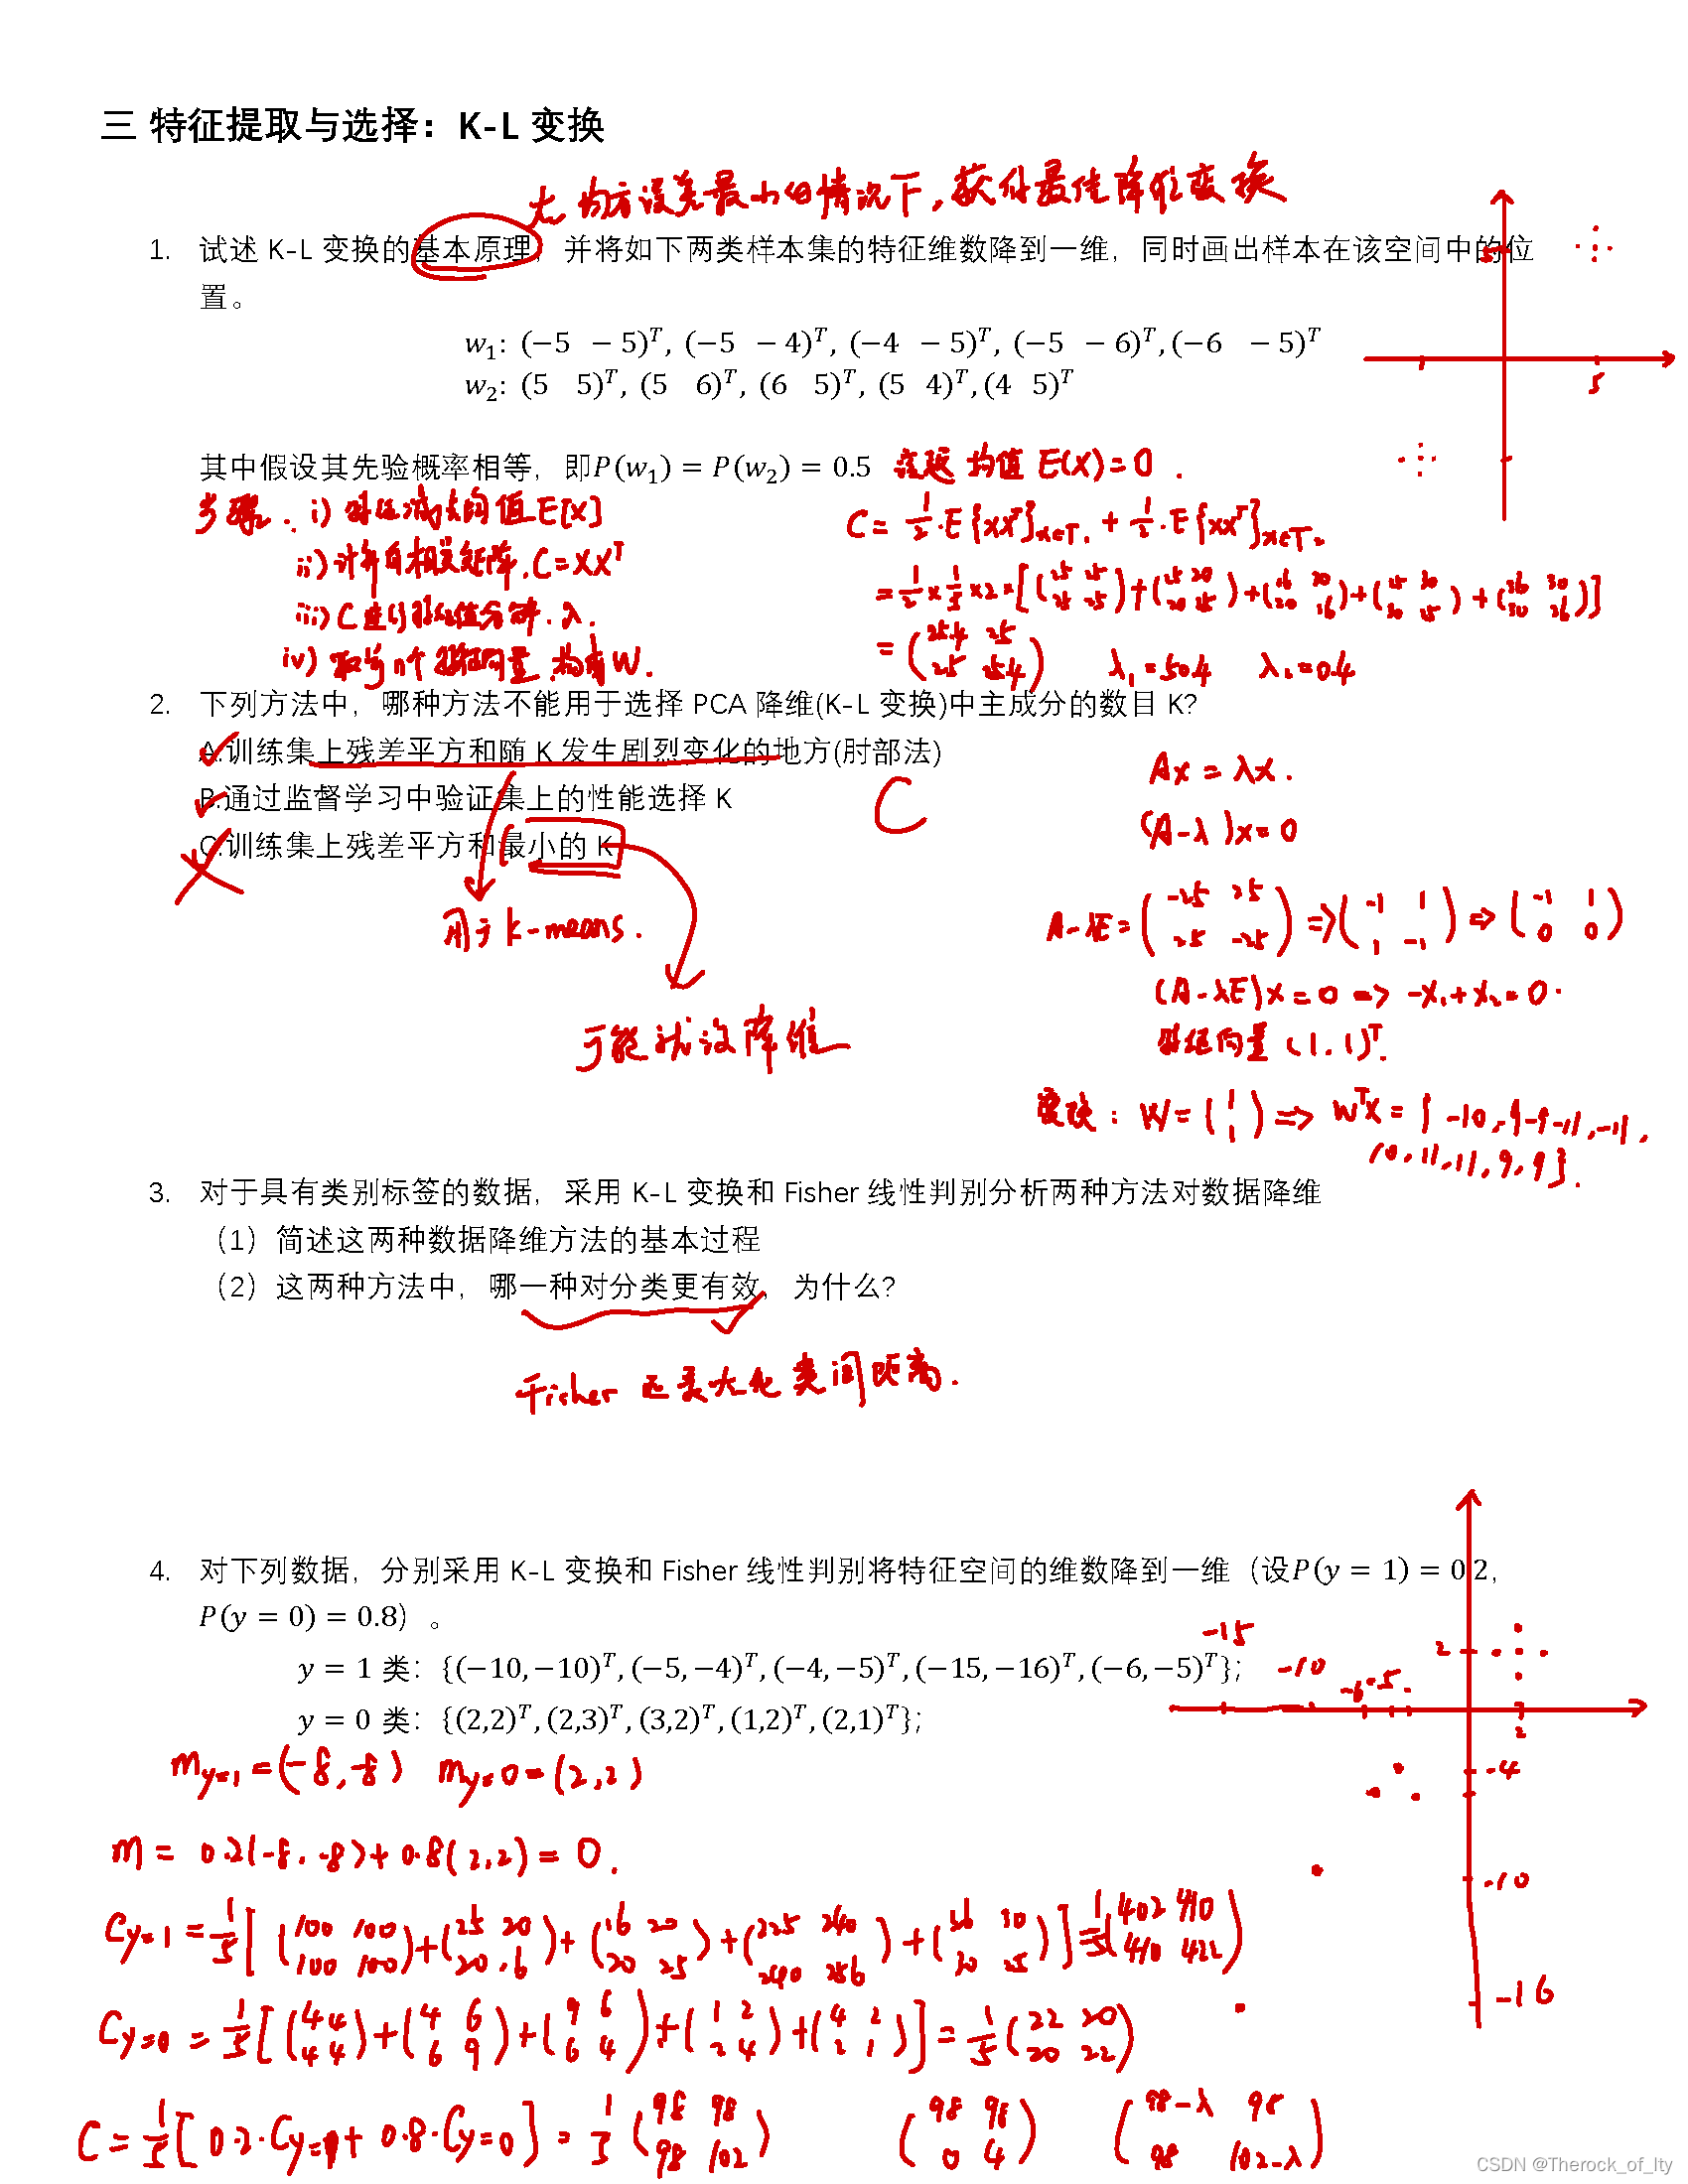 三 特征提取与选择：K-L 变换
均方误差最小的情况下，获得最佳降维变换
1. 试述 K-L 变换的基本原理，并将如下两类样本集的特征维数降到一维，同时画出样本在该空间中的位
置。
5
w₁: (−5 −5)ᵀ, (−5 −4)ᵀ, (−4 −5)ᵀ, (−5 −6)ᵀ, (−6 −5)ᵀ
w₂: (5 5)ᵀ, (5 6)ᵀ, (6 5)ᵀ, (5 4)ᵀ, (4 5)ᵀ
5
其中假设其先验概率相等，即P(w₁) = P(w₂) = 0.5 均值 E(X)=0.
步骤. i) 减去均值 E[X]
ii) 计算自相关矩阵. C=XXᵀ
iii) C 进行特征值分解. λ.
iv) 取前n个特征向量 构成W.
C= 1/2·E{XXᵀ}x∈T₁ + 1/2·E{XXᵀ}x∈T₂
= 1/2 × 1/5 ×2×[(25 25 25 25)+(25 20 20 16)+(16 20 20 25)+(25 30 30 36)+(36 30 30 25)]
= (25.4 25 25 25.4) λ₁=50.4 λ₂=0.4
2. 下列方法中，哪种方法不能用于选择 PCA 降维(K-L 变换)中主成分的数目 K?
A.训练集上残差平方和随 K 发生剧烈变化的地方(肘部法)
B.通过监督学习中验证集上的性能选择 K
C
C.训练集上残差平方和最小的 K
用于 k-means.
可能就没降维
Ax = λx.
(A-λ)x=0
A-λE = (-25 25 25 -25) => (-1 1 1 -1) => (-1 1 0 0)
(A-λE)x=0 => -x₁+x₂=0.
特征向量 (1,1)ᵀ.
变换: W=(1 1) => WᵀX = { -10, -9, -9, -11, -11,
10, 11, 11, 9, 9}.
3. 对于具有类别标签的数据，采用 K-L 变换和 Fisher 线性判别分析两种方法对数据降维
（1）简述这两种数据降维方法的基本过程
（2）这两种方法中，哪一种对分类更有效，为什么?
Fisher 最大化类间距离.
4. 对下列数据，分别采用 K-L 变换和 Fisher 线性判别将特征空间的维数降到一维（设P(y = 1) = 0.2，
P(y = 0) = 0.8）。
y = 1 类：{(−10, −10)ᵀ, (−5, −4)ᵀ, (−4, −5)ᵀ, (−15, −16)ᵀ, (−6, −5)ᵀ};
y = 0 类：{(2,2)ᵀ, (2,3)ᵀ, (3,2)ᵀ, (1,2)ᵀ, (2,1)ᵀ};
-15
-10
-6 -5
2
2
-4
-10
-16
my=1 =(-8,-8) my=0=(2,2)
m = 0.2(-8,-8)+0.8(2,2)=0.
Cy=1 = 1/5[(100 100 100 100)+(25 20 20 16)+(16 20 20 25)+(225 240 240 256)+(36 30 30 25)]=1/5(402 410 410 422)
Cy=0 = 1/5[(4 4 4 4)+(4 6 6 9)+(9 6 6 4)+(1 2 2 4)+(4 2 2 1)]=1/5(22 20 20 22)
C = 1/5[0.2·Cy=1+0.8·Cy=0] = 1/5(98 98 98 102) (98 98 0 4) (98-λ 98 98 102-λ)
CSDN @Therock_of_lty